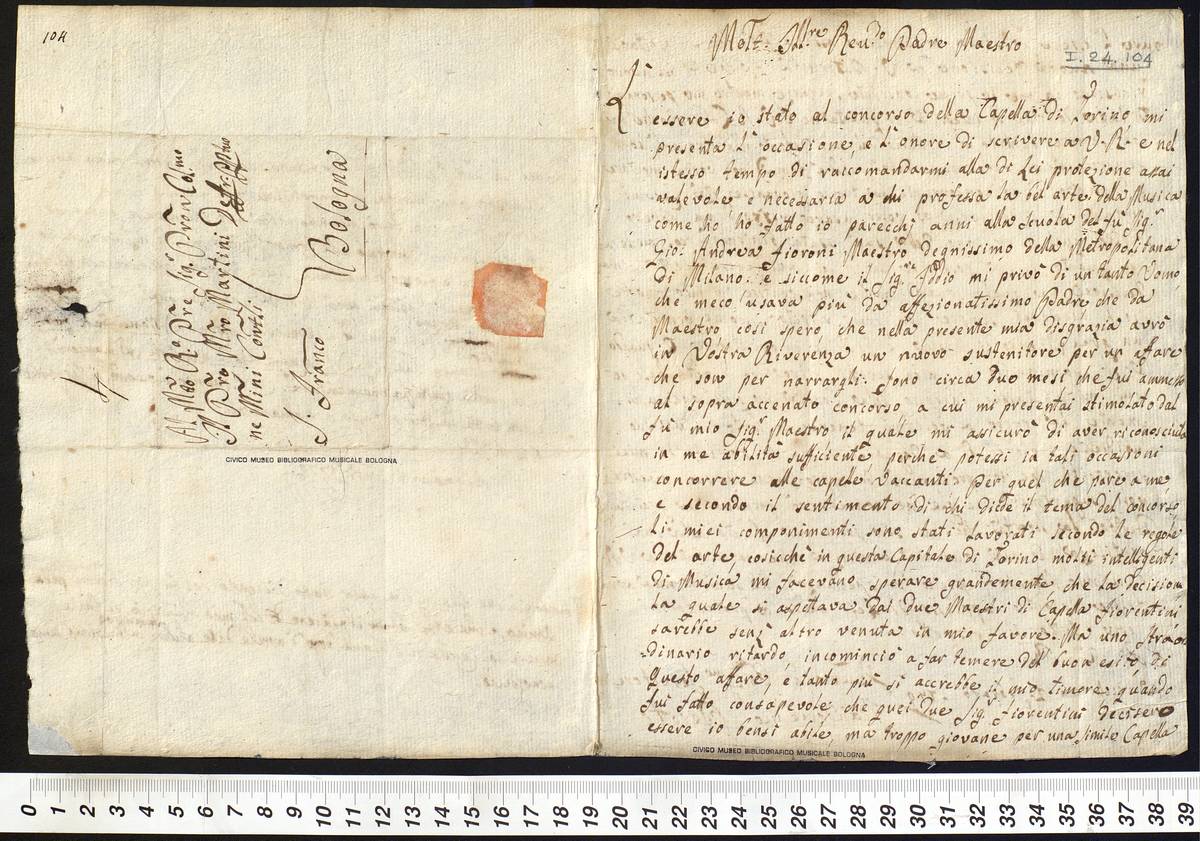 104
Al M.to R.do Pre Sig.r Pron Col.mo
Il Pre Mro Martini
ne Mini Conv.li
S. Franco
Bologna
CIVICO MUSEO BIBLIOGRAFICO MUSICALE BOLOGNA
Molt. Ill.re Reu.do Padre Maestro
I. 24. 104
L'
essere io stato al concorso della Capella di Torino mi
presenta l'occasione, e l'onore di scrivere a V. R. e nel
istesso tempo di raccomandarmi alla di Lei protezione assai
valevole e necessaria a chi professa la bel arte della Musica
come ho ho fatto io parecchi anni alla Scuola del fù Sig.r
Gio: Andrea Fioroni Maestro degnissimo della Metropolitana
di Milano. e siccome il Sig.re Iddio mi privò di un tanto Uomo
che meco usava più da affezionatissimo Padre che da
Maestro così spero, che nella presente mia disgrazia avrò
in Vostra Riverenza un nuovo sustenitore per un affare
che son per narrargli. Sono circa duo mesi che fui ammesso
al sopra accenato concorso, a cui mi presentai stimolato dal
fù mio Sig.r Maestro il quale mi assicurò di aver riconosciuta
in me abilità sufficiente, perchè potessi in tali occasioni
concorrere alle capelle vaccanti. per quel che pare a me
e secondo il sentimento di chi diede il tema del concorso
li miei componimenti sono stati lavorati secondo le regole
del arte, cosicchè in questa Capitale di Torino molti intelligenti
di Musica mi facevano sperare grandemente che la decisione
la quale si aspettava dal due Maestri di Capella Fiorentini
sarebbe senz'altro venuta in mio favore. Ma uno straor-
dinario ritardo, incominciò a far temere del buon esito, di
questo affare, e tanto più si accrebbe il mio timore quando
fui fatto consapevole che quei due Sig.ri Fiorentini decisero
essere io bensì abile, ma troppo giovane per una simile Capella
CIVICO MUSEO BIBLIOGRAFICO MUSICALE BOLOGNA
0 1 2 3 4 5 6 7 8 9 10 11 12 13 14 15 16 17 18 19 20 21 22 23 24 25 26 27 28 29 30 31 32 33 34 35 36 37 38 39